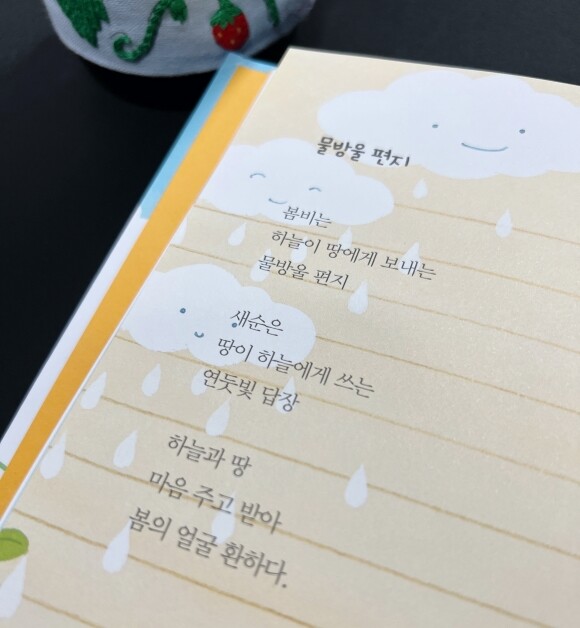 물방울 편지
봄비는
하늘이 땅에게 보내는
물방울 편지
새순은
땅이 하늘에게 쓰는
연둣빛 답장
하늘과 땅
마음 주고 받아
봄의 얼굴 환하다.